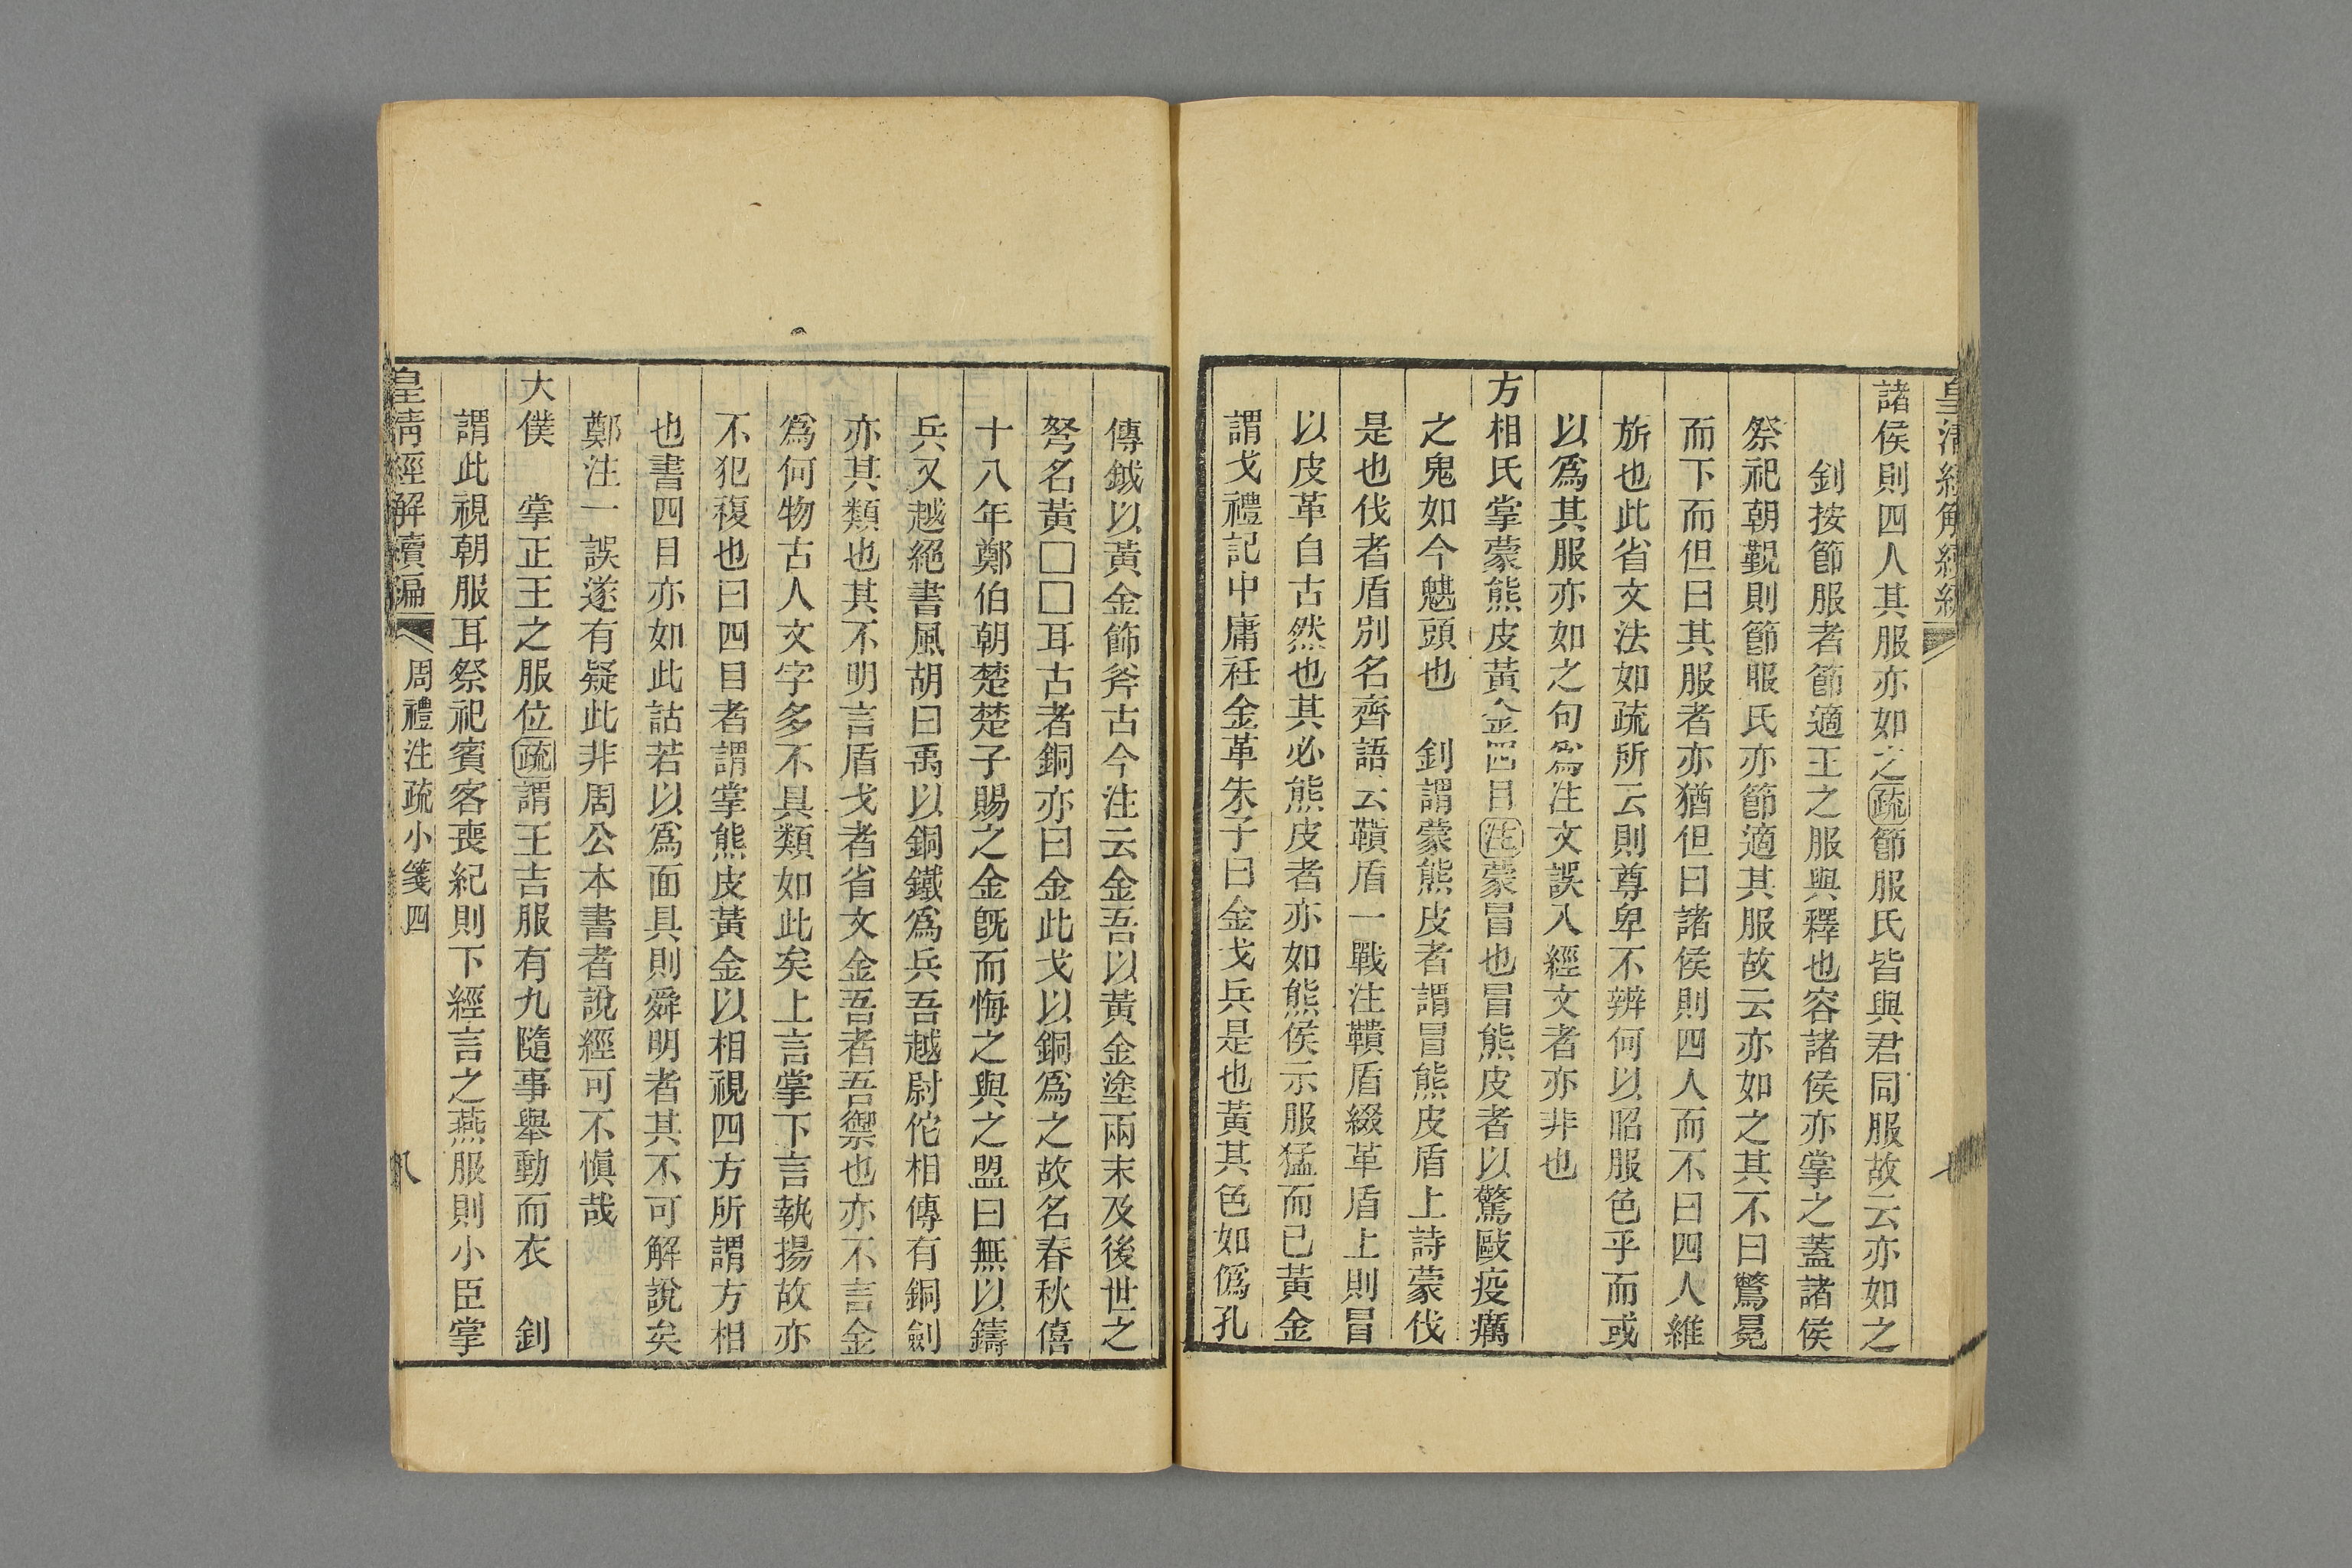 皇清經解續編
七
諸侯則四人其服亦如之疏節服氏皆與君同服故云亦如之
釗按節服者節適王之服與釋也容諸侯亦掌之蓋諸侯
祭祀朝覲則節服氏亦節適其服故云亦如之其不曰驚冕
而下而但曰其服者亦猶但曰諸侯則四人而不曰四人維
旂也此省文法如疏所云則尊卑不辨何以昭服色乎而或
以爲其服亦如之句爲注文誤入經文者亦非也
方相氏掌蒙熊皮黃金四目注蒙冒也冒熊皮者以驚毆疫癘
之鬼如今魌頭也 釗謂蒙熊皮者謂冒熊皮盾上詩蒙伐
是也伐者盾別名齊語云鞼盾一戰注鞼盾綴革盾上則冒
以皮革自古然也其必熊皮者亦如熊侯示服猛而已黃金
謂戈禮記中庸衽金革朱子曰金戈兵是也黃其色如僞孔
傳鉞以黃金飾斧古今注云金吾以黃金塗兩末及後世之
弩名黃□□耳古者銅亦曰金此戈以銅爲之故名春秋僖
十八年鄭伯朝楚楚子賜之金旣而悔之與之盟曰無以鑄
兵又越絕書風胡曰禹以銅鐵爲兵吾越尉佗相傳有銅劍
亦其類也其不明言盾戈者省文金吾者吾禦也亦不言金
爲何物古人文字多不具類如此矣上言掌下言執揚故亦
不犯複也曰四目者謂掌熊皮黃金以相視四方所謂方相
也書四目亦如此詁若以爲面具則舜明者其不可解說矣
鄭注一誤遂有疑此非周公本書者說經可不愼哉
大僕 掌正王之服位疏謂王吉服有九隨事舉動而衣 釗
謂此視朝服耳祭祀賓客喪紀則下經言之燕服則小臣掌
皇清經解續編 周禮注疏小箋四 八